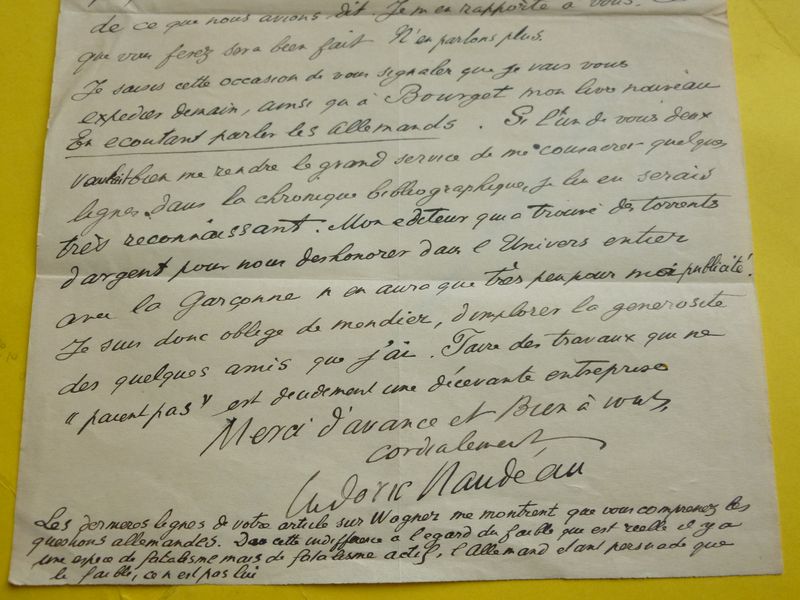 de ce que nous avions dit. Je m'en rapporte à vous. Ce
que vous ferez sera bien fait N'en parlons plus.
Je saisis cette occasion de vous signaler que je vais vous
expedier demain, ainsi qu'à Bourget mon livre nouveau
En ecoutant parler les allemands. Si l'un de vous deux
voulait bien me rendre le grand service de me consacrer quelques
lignes dans la chronique bibliographique, je lui en serais
très reconnaissant. Mon editeur qui a trouvé des torrents
d'argent pour nous deshonorer dans l'Univers entier
avec la Garçonne n'en aura que très peu pour moi publicité!
Je suis donc obligé de mendier, d'implorer la generosité
des quelques amis que j'ai. Faire des travaux qui ne
"paient pas" est decidement une décevante entreprise
Merci d'avance et Bien à vous,
cordialement
Ludovic Naudeau
Les dernieres lignes de votre article sur Wagner me montrent que vous comprenez les
questions allemandes. Dans cette indifférence à l'egard du faible qui est reelle il y a
une espece de fatalisme mais de fatalisme actif, l'Allemand etant persuadé que
le faible, ce n'est pas lui